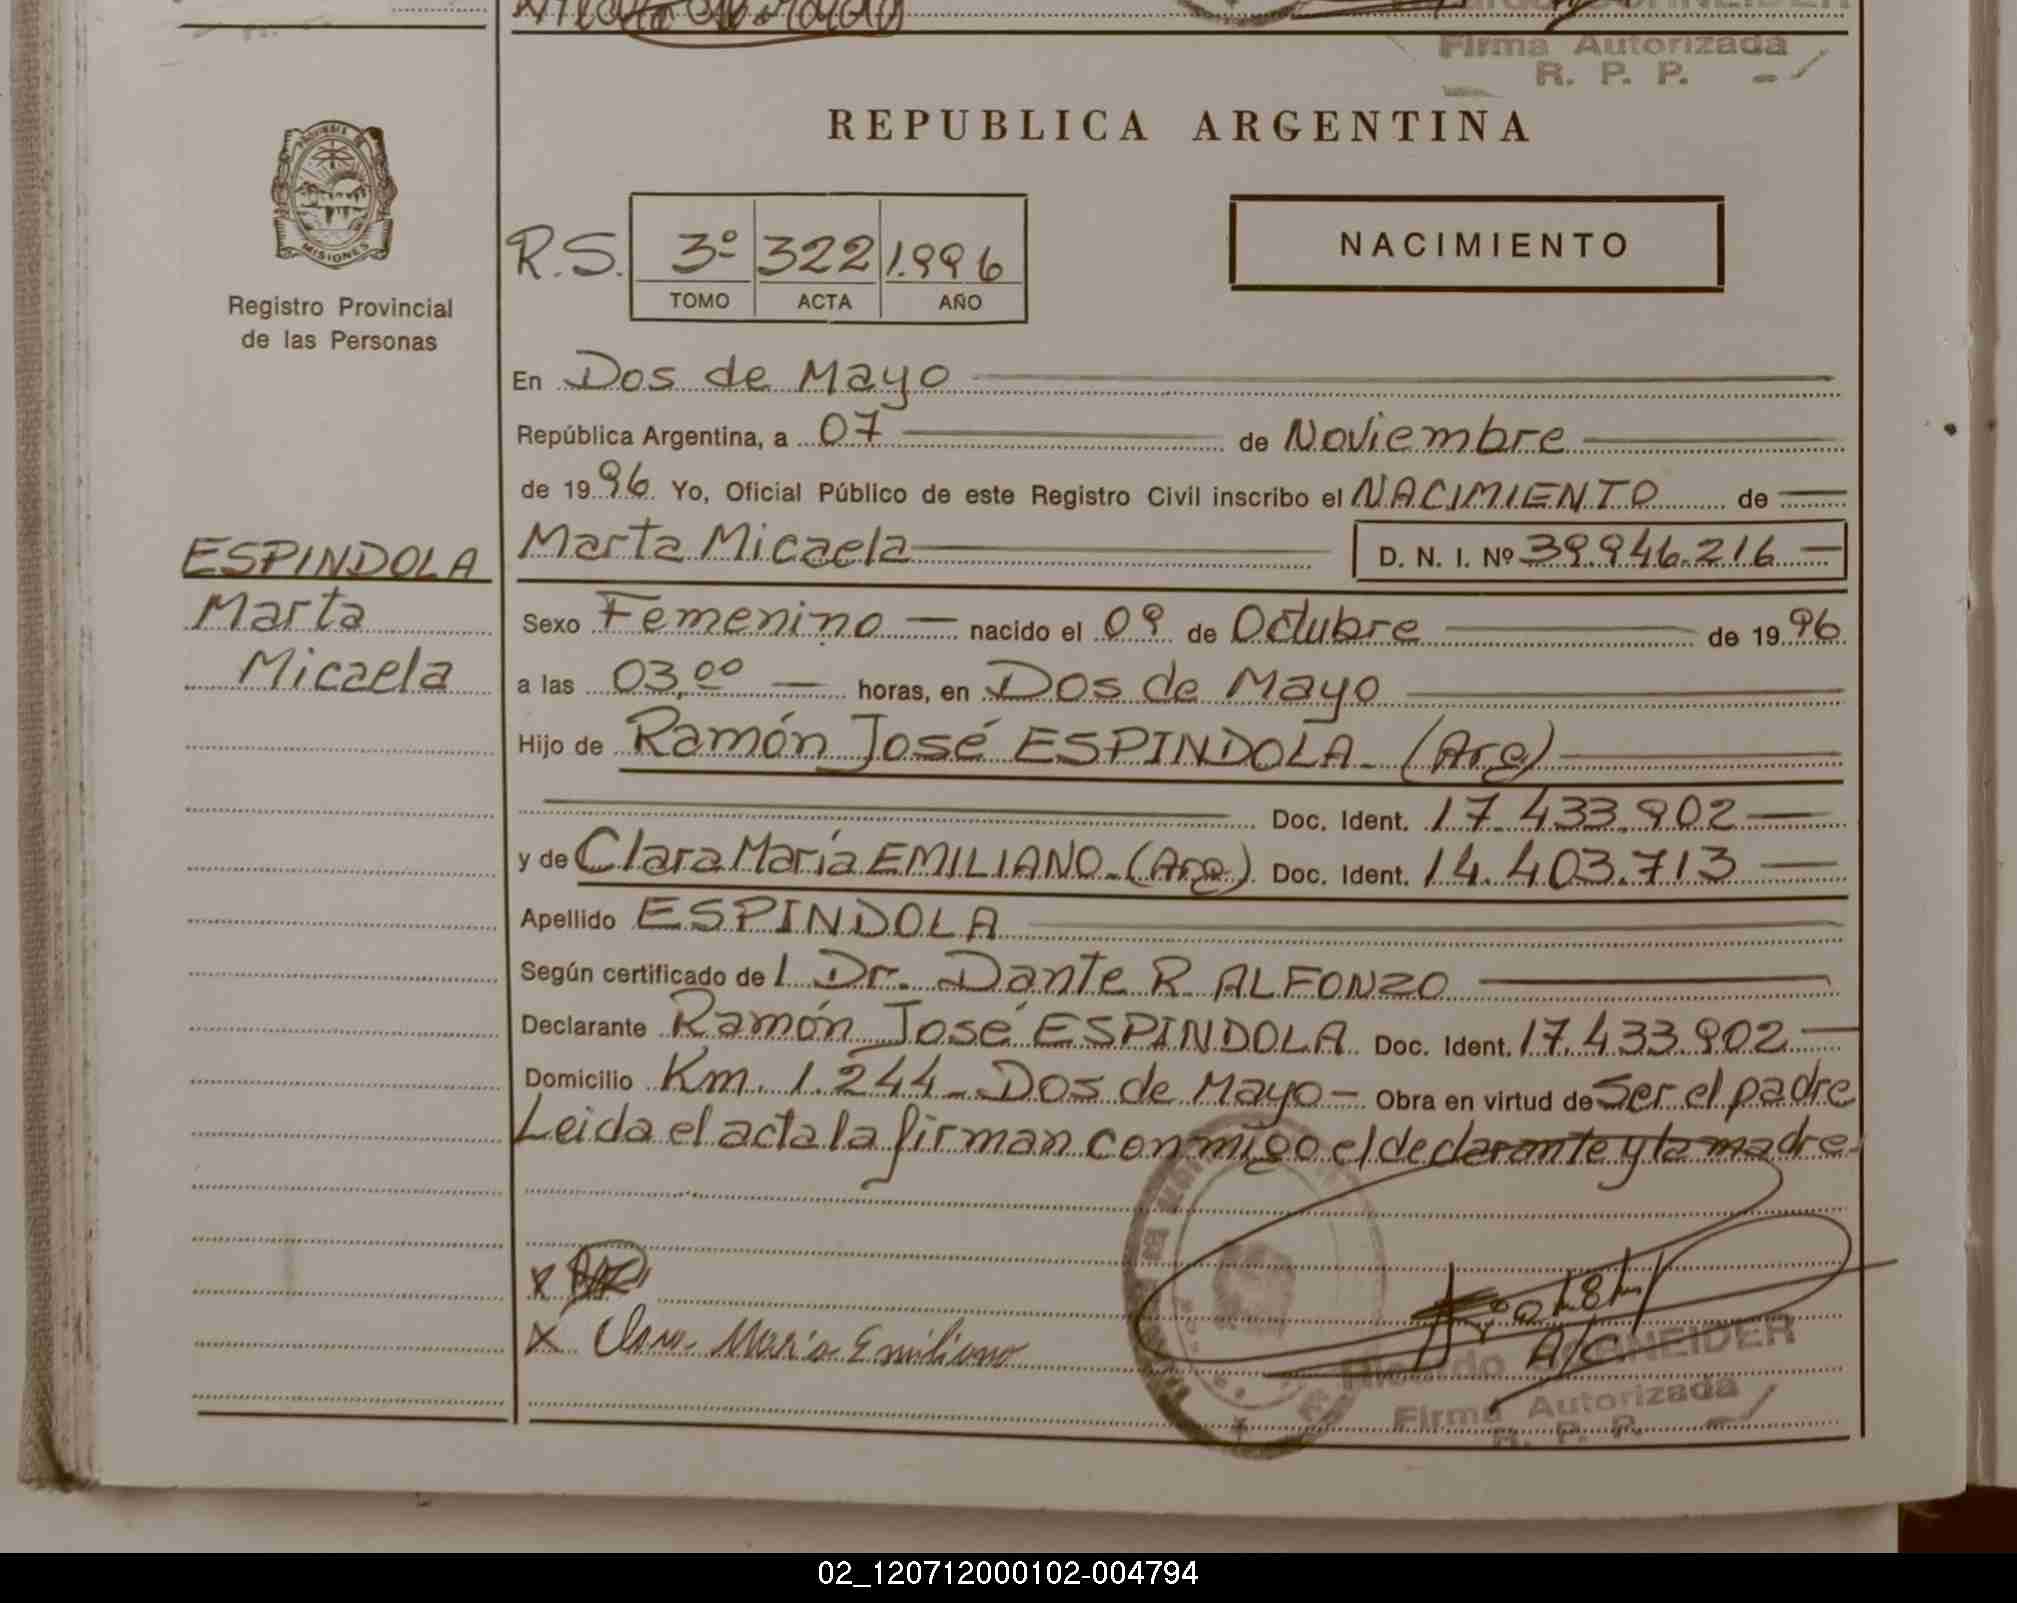 Firma Autorizada
R. P. P.
REPUBLICA ARGENTINA
PROVINCIA DE
MISIONES
Registro Provincial
de las Personas
R.S. 3º 322 1.996
TOMO ACTA AÑO
NACIMIENTO
En Dos de Mayo
República Argentina, a 07 de Noviembre
de 1996. Yo, Oficial Público de este Registro Civil inscribo el NACIMIENTO de
ESPINDOLA
Marta
Micaela
Marta Micaela D. N. I. Nº 39.946.216.
Sexo Femenino nacido el 09 de Octubre de 1996
a las 03,00 horas, en Dos de Mayo
Hijo de Ramón José ESPINDOLA. (Arg)
Doc. Ident. 17.433.902
y de Clara María EMILIANO. (Arg). Doc. Ident. 14.403.713
Apellido ESPINDOLA
Según certificado de l Dr. Dante R. ALFONZO
Declarante Ramón José ESPINDOLA. Doc. Ident. 17.433.902
Domicilio Km. 1.244 - Dos de Mayo - Obra en virtud de Ser el padre
Leida el acta la firman conmigo el declarante y la madre.
x
x Clara María Emiliano
A/C
Ricardo SCHNEIDER
Firma Autorizada
R. P. P.
02_120712000102-004794